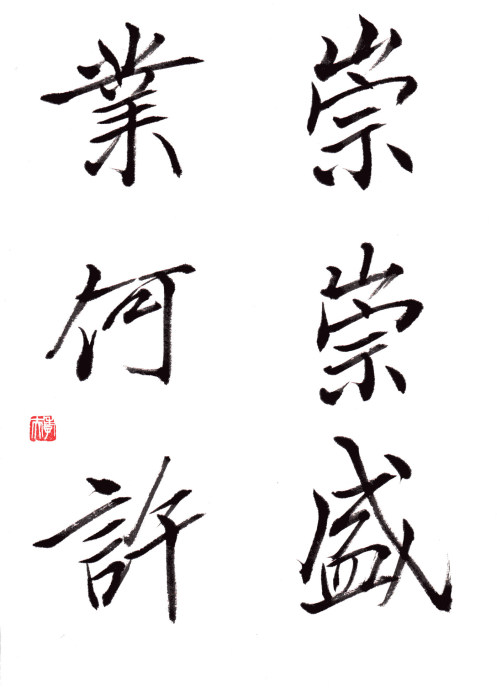 崇崇盛
業何許